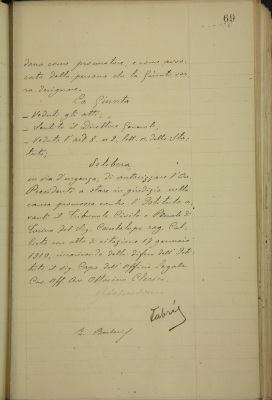 69
dano come promotore, e come avvo-
cato dalla persona che la Giunta vor-
rà designare.
La Giunta
- Veduti gli atti,
- Sentito il Direttore Generale,
- Veduto l'art 8. n 2, lett. n dello Sta-
tuto,
Delibera
in via d'urgenza, di autorizzare l'On.
Presidente a stare in giudizio nella
causa promossa contro l'Istituto a-
vanti il Tribunale Civile e Penale di
Torino dal Sig. Cantalupo rag. Cal-
con atto di citazione 17 gennaio
incaricando della difesa dell'Isti-
tuto il Sig. Capo dell'Ufficio Legale
Cav. Uff. Av. Ottorino